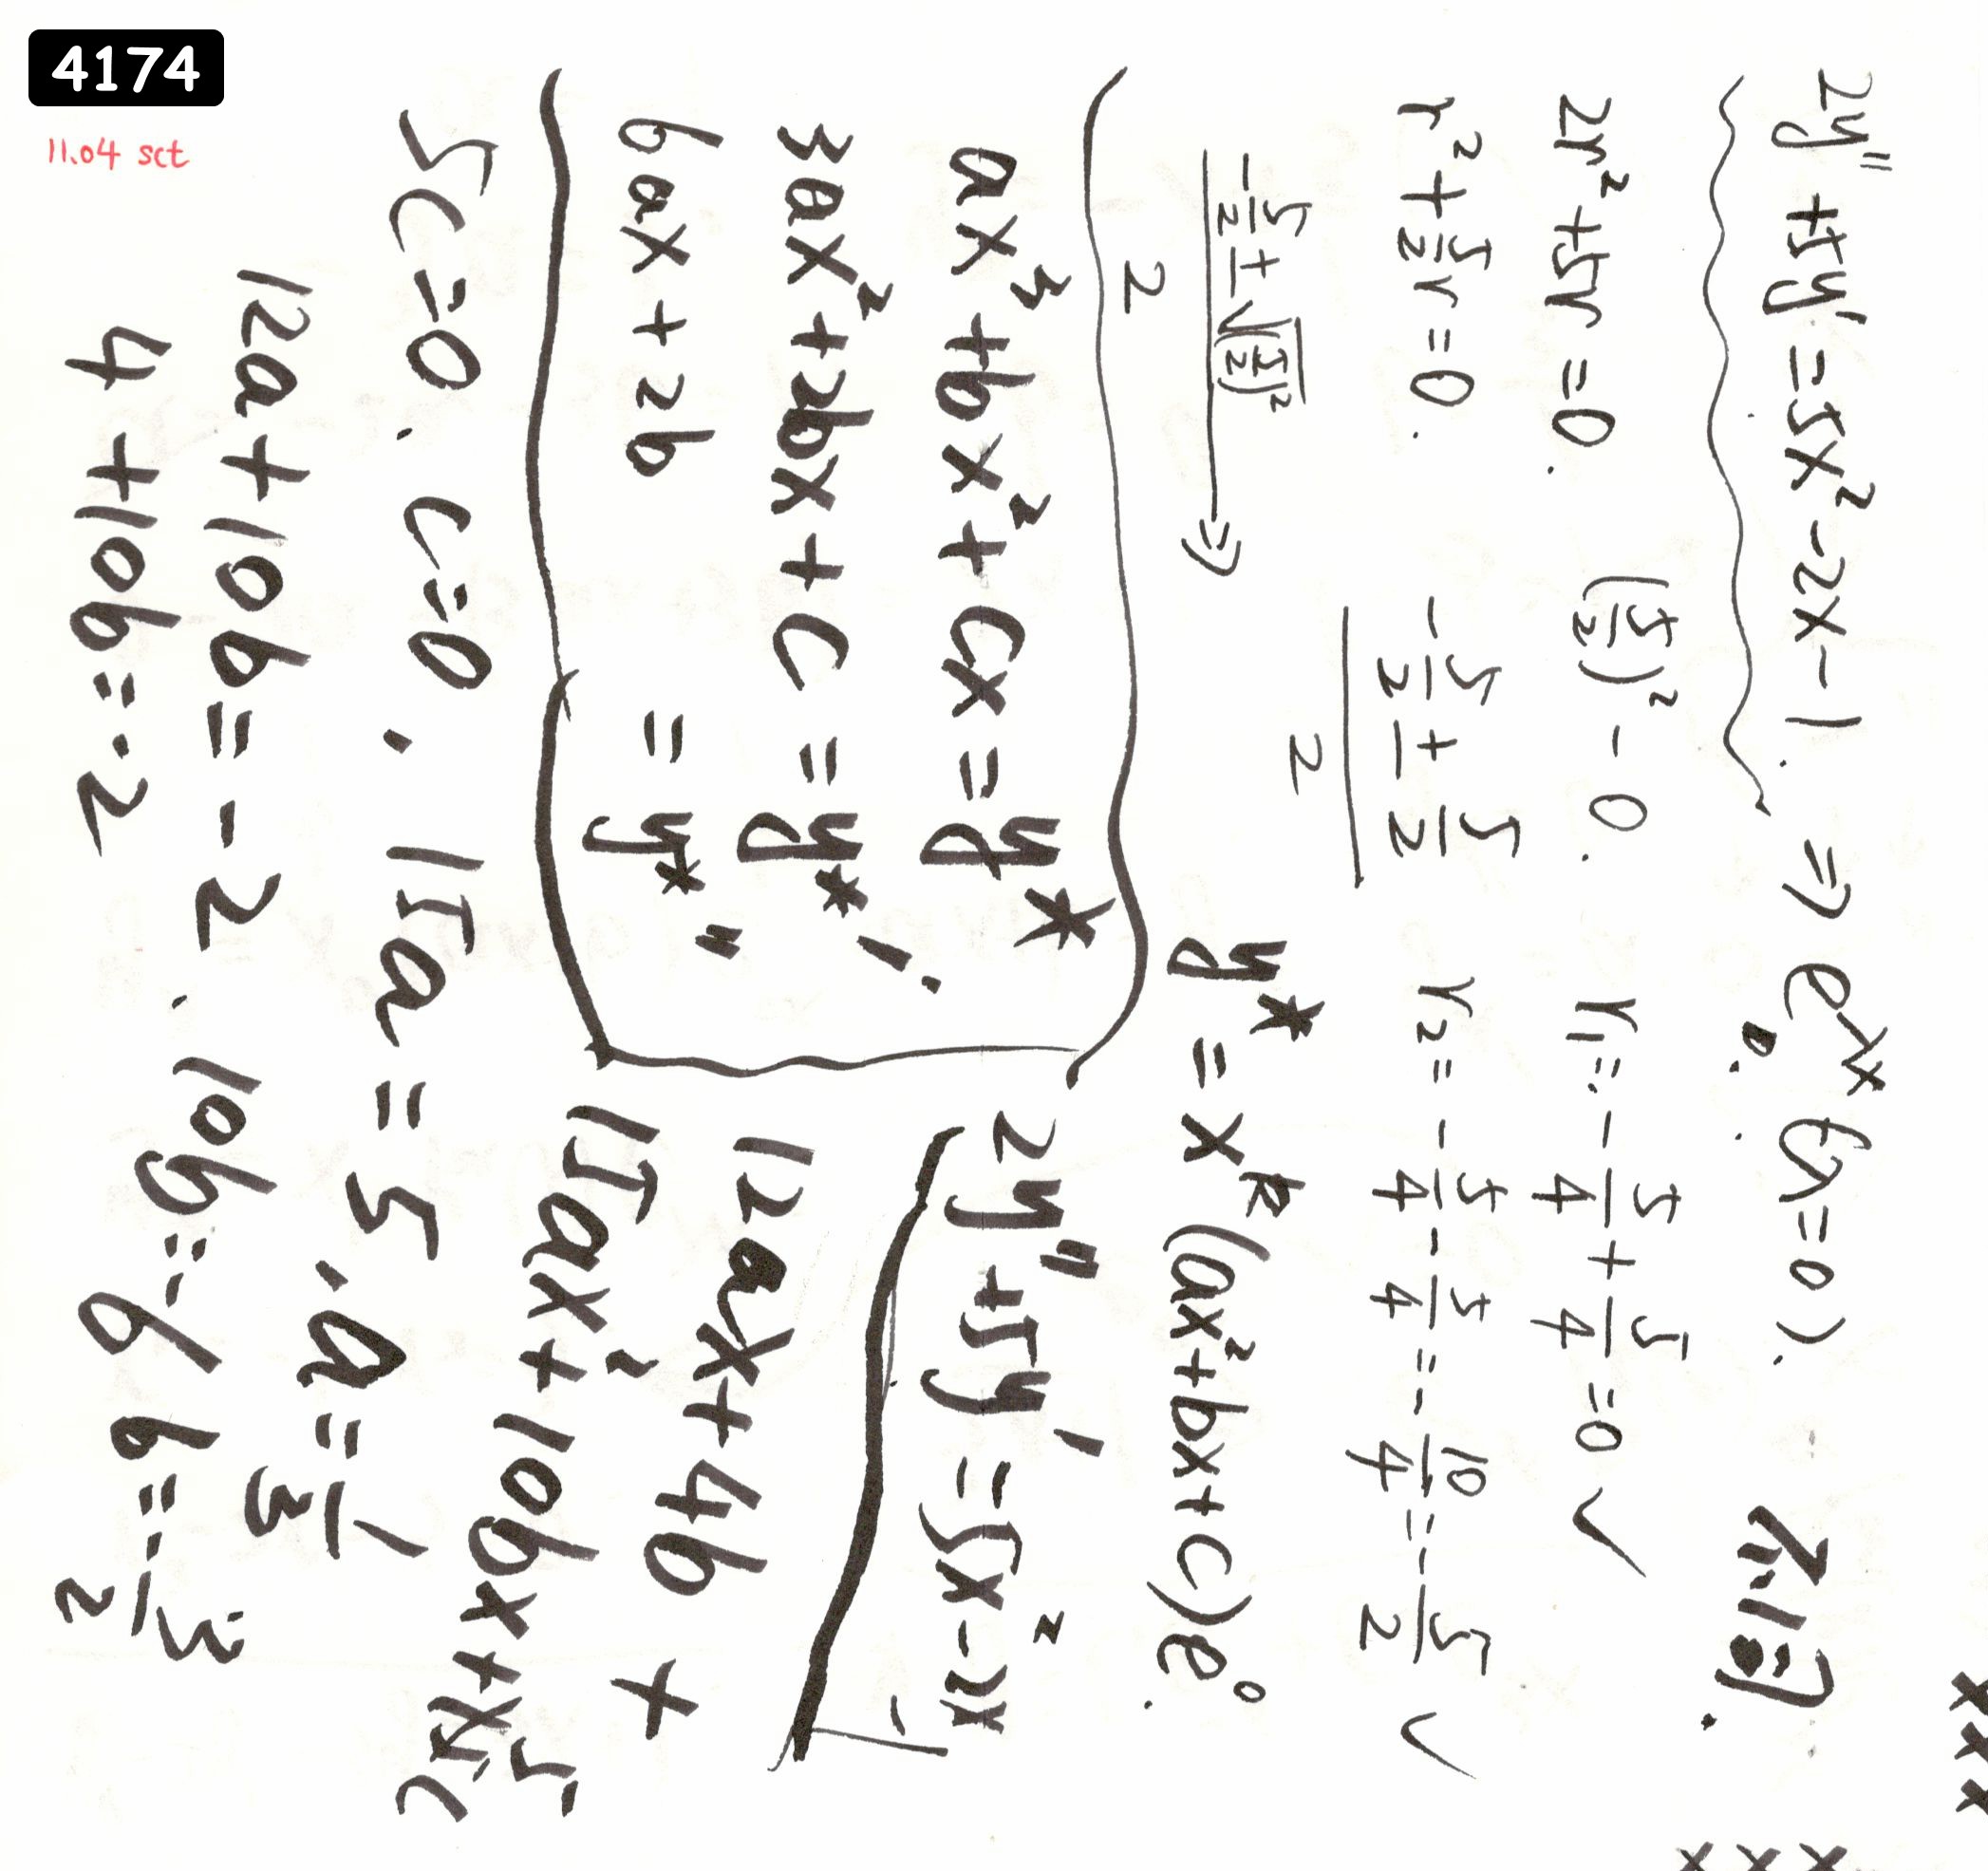 4174
11.04 sct
2y" + 5y' = 5x² - 2x - 1. ⇒ e^λx (λ=0).
2r² + 5r = 0. (5/2)² - 0. r₁ = -5/4 + 5/4 = 0 ✓
r² + 5/2 r = 0. (-5/2 ± 5/2)/2 r₂ = -5/4 - 5/4 = -10/4 = -5/2 ✓
(-5/2 ± √(5/2)²)/2 ⇒ y* = x^k (ax² + bx + c) e⁰.
ax³ + bx² + cx = y*
3ax² + 2bx + c = y*'.
6ax + 2b = y*"
2y" + 5y' = 5x² - 2x - 1
12ax + 4b +
15ax² + 10bx + 5c
5c = 0. c = 0, 15a = 5. a = 1/3
12a + 10b = -2. 10b = -6 b = -3/5
4 + 10b = -2
x x x
x x x